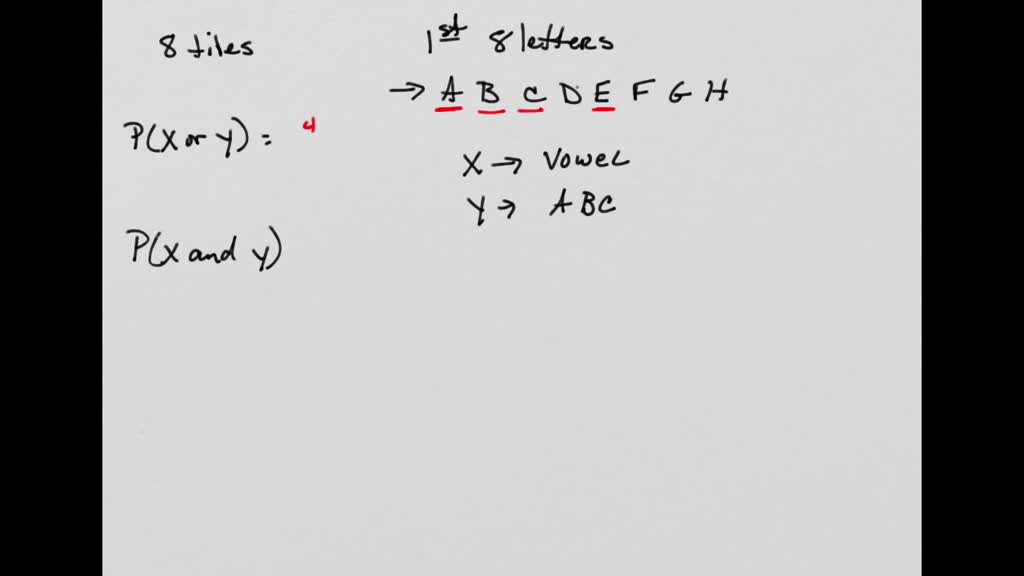 8 tiles
1st 8 letters
→ A B C D E F G H
P(X or Y) = 4
X → Vowel
Y → ABC
P(X and Y)